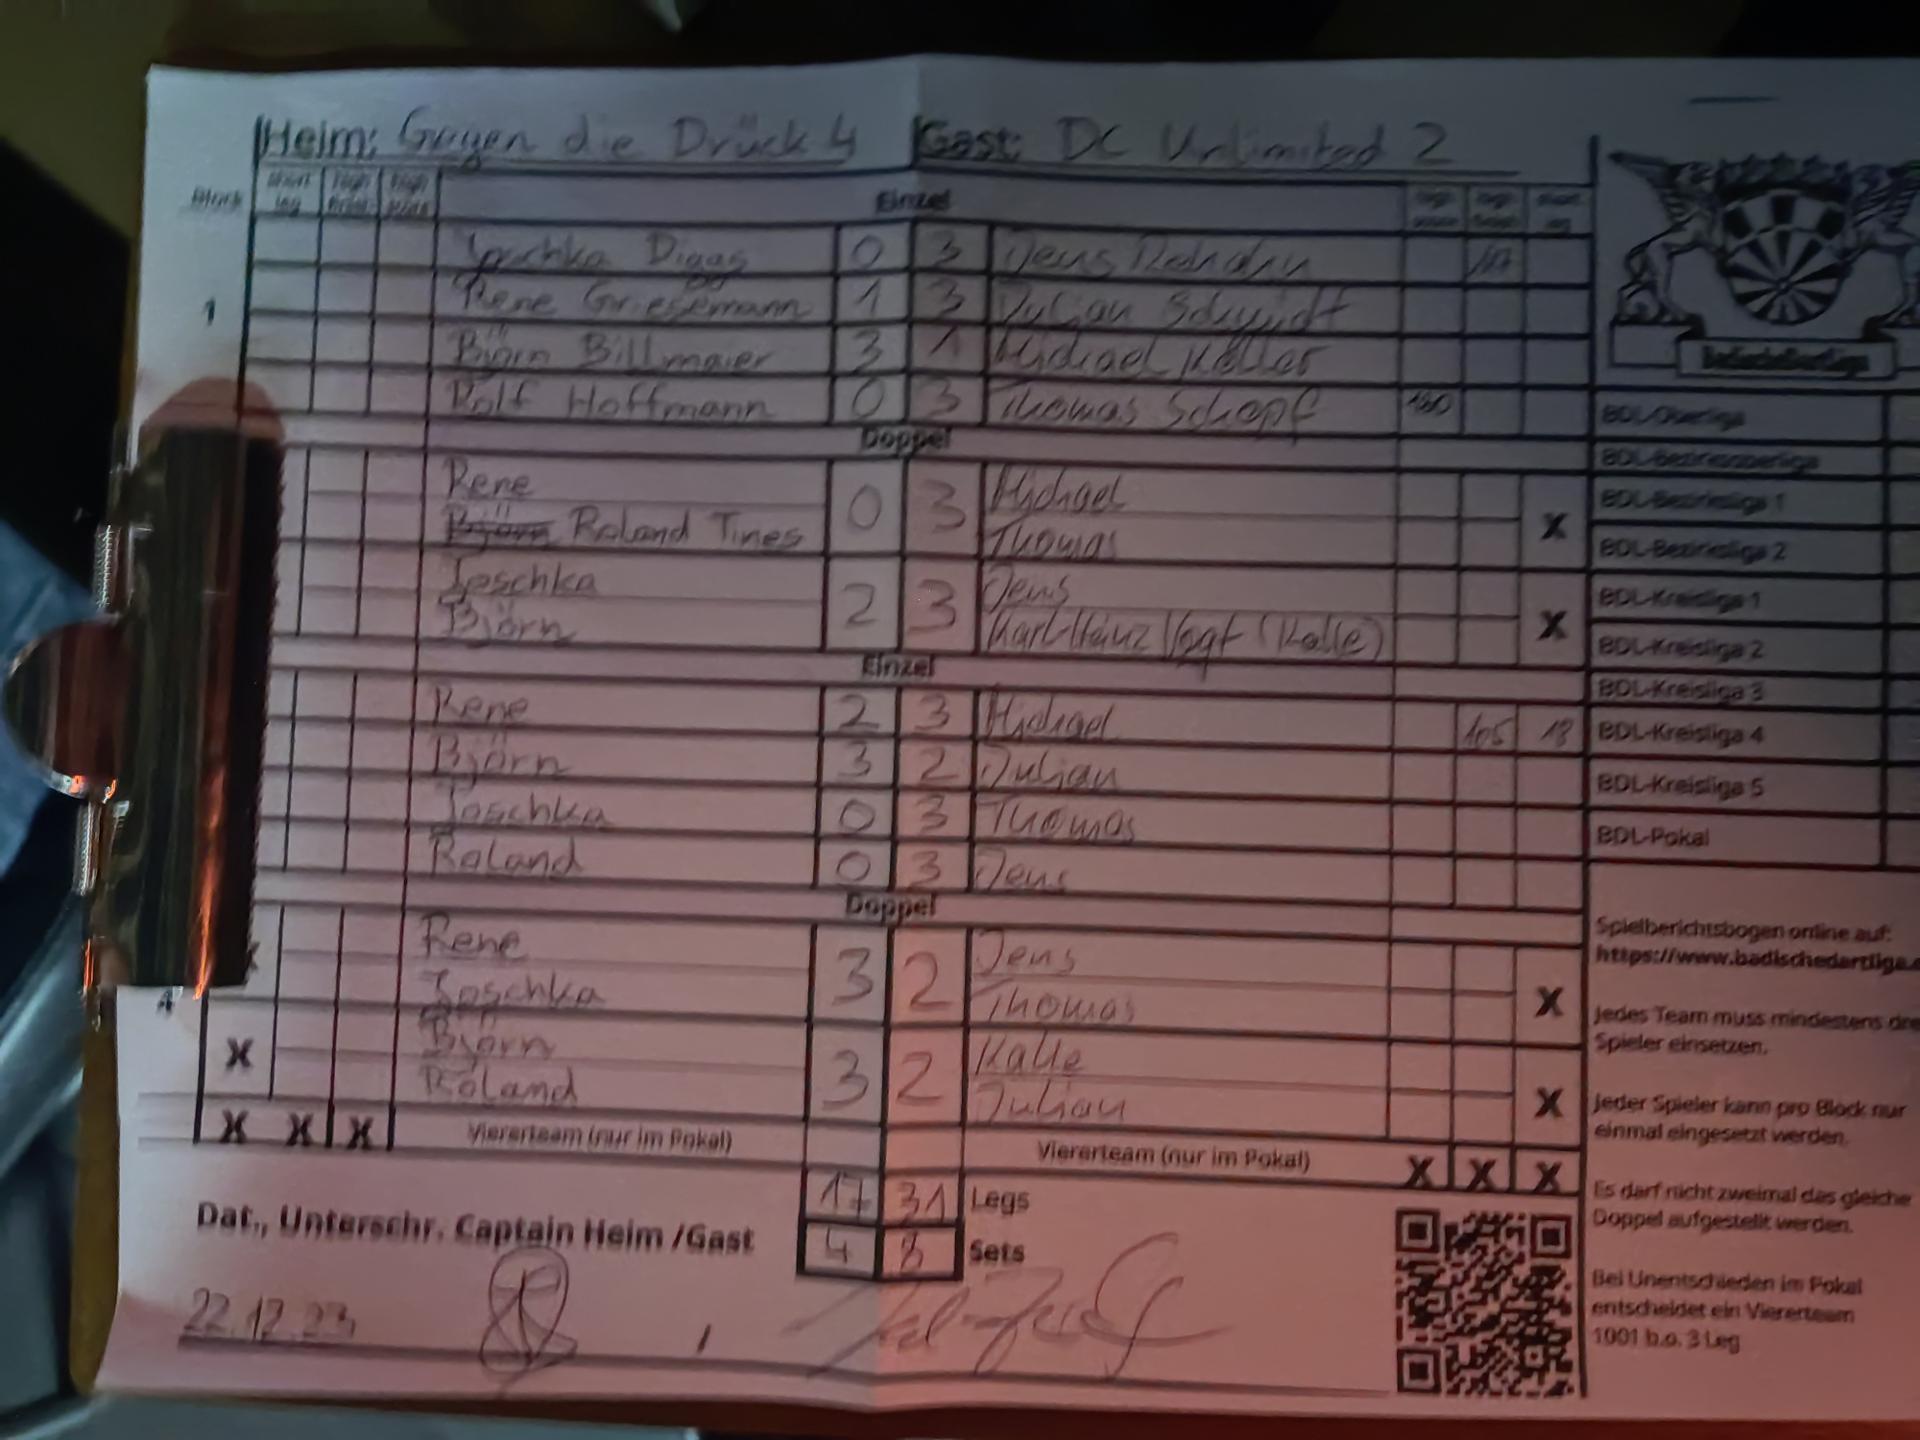 Heim: Gegen die Drück 4 Gast: DC Unlimited 2
Block short leg high finish high score Einzel high score high finish short leg
Joschka Diggs 0 3 Jens
1 Rene Griesemann 1 3 Julian Schmidt
Björn Billmaier 3 1 Michael Keller
Rolf Hoffmann 0 3 Thomas Schopf 180
Doppel
Rene 0 3 Michael
Roland Tines Thomas X
Joschka 2 3 Jens
Björn Karl-Heinz Vogt (Kalle) X
Einzel
Rene 2 3 Michael 105 18
Björn 3 2 Julian
Joschka 0 3 Thomas
Roland 0 3 Jens
Doppel
Rene 3 2 Jens
Joschka Thomas X
4
X Björn 3 2 Kalle
Roland Julian X
X X X Viererteam (nur im Pokal) Viererteam (nur im Pokal) X X X
17 31 Legs
Dat., Unterschr. Captain Heim /Gast 4 8 Sets
22.12.23 /
BDL-Oberliga
BDL-Bezirksoberliga
BDL-Bezirksliga 1
BDL-Bezirksliga 2
BDL-Kreisliga 1
BDL-Kreisliga 2
BDL-Kreisliga 3
BDL-Kreisliga 4
BDL-Kreisliga 5
BDL-Pokal
Spielberichtsbogen online auf:
https://www.badischedartliga.
Jedes Team muss mindestens dre
Spieler einsetzen.
Jeder Spieler kann pro Block nur
einmal eingesetzt werden.
Es darf nicht zweimal das gleiche
Doppel aufgestellt werden.
Bei Unentschieden im Pokal
entscheidet ein Viererteam
1001 b.o. 3 Leg